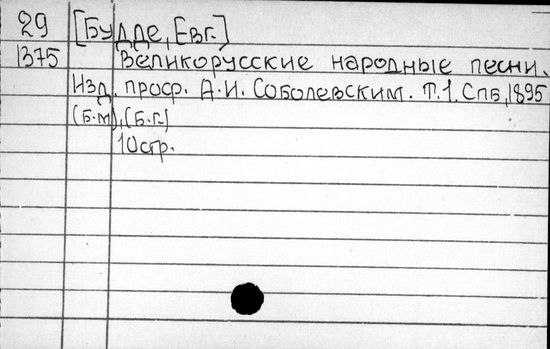 29 [Будде, Евг.]
1375 Великорусские народные песни.
Изд. проф. А.И. Соболевским. Т.1. Спб, 1895
(б.м), (б.г.)
10стр.